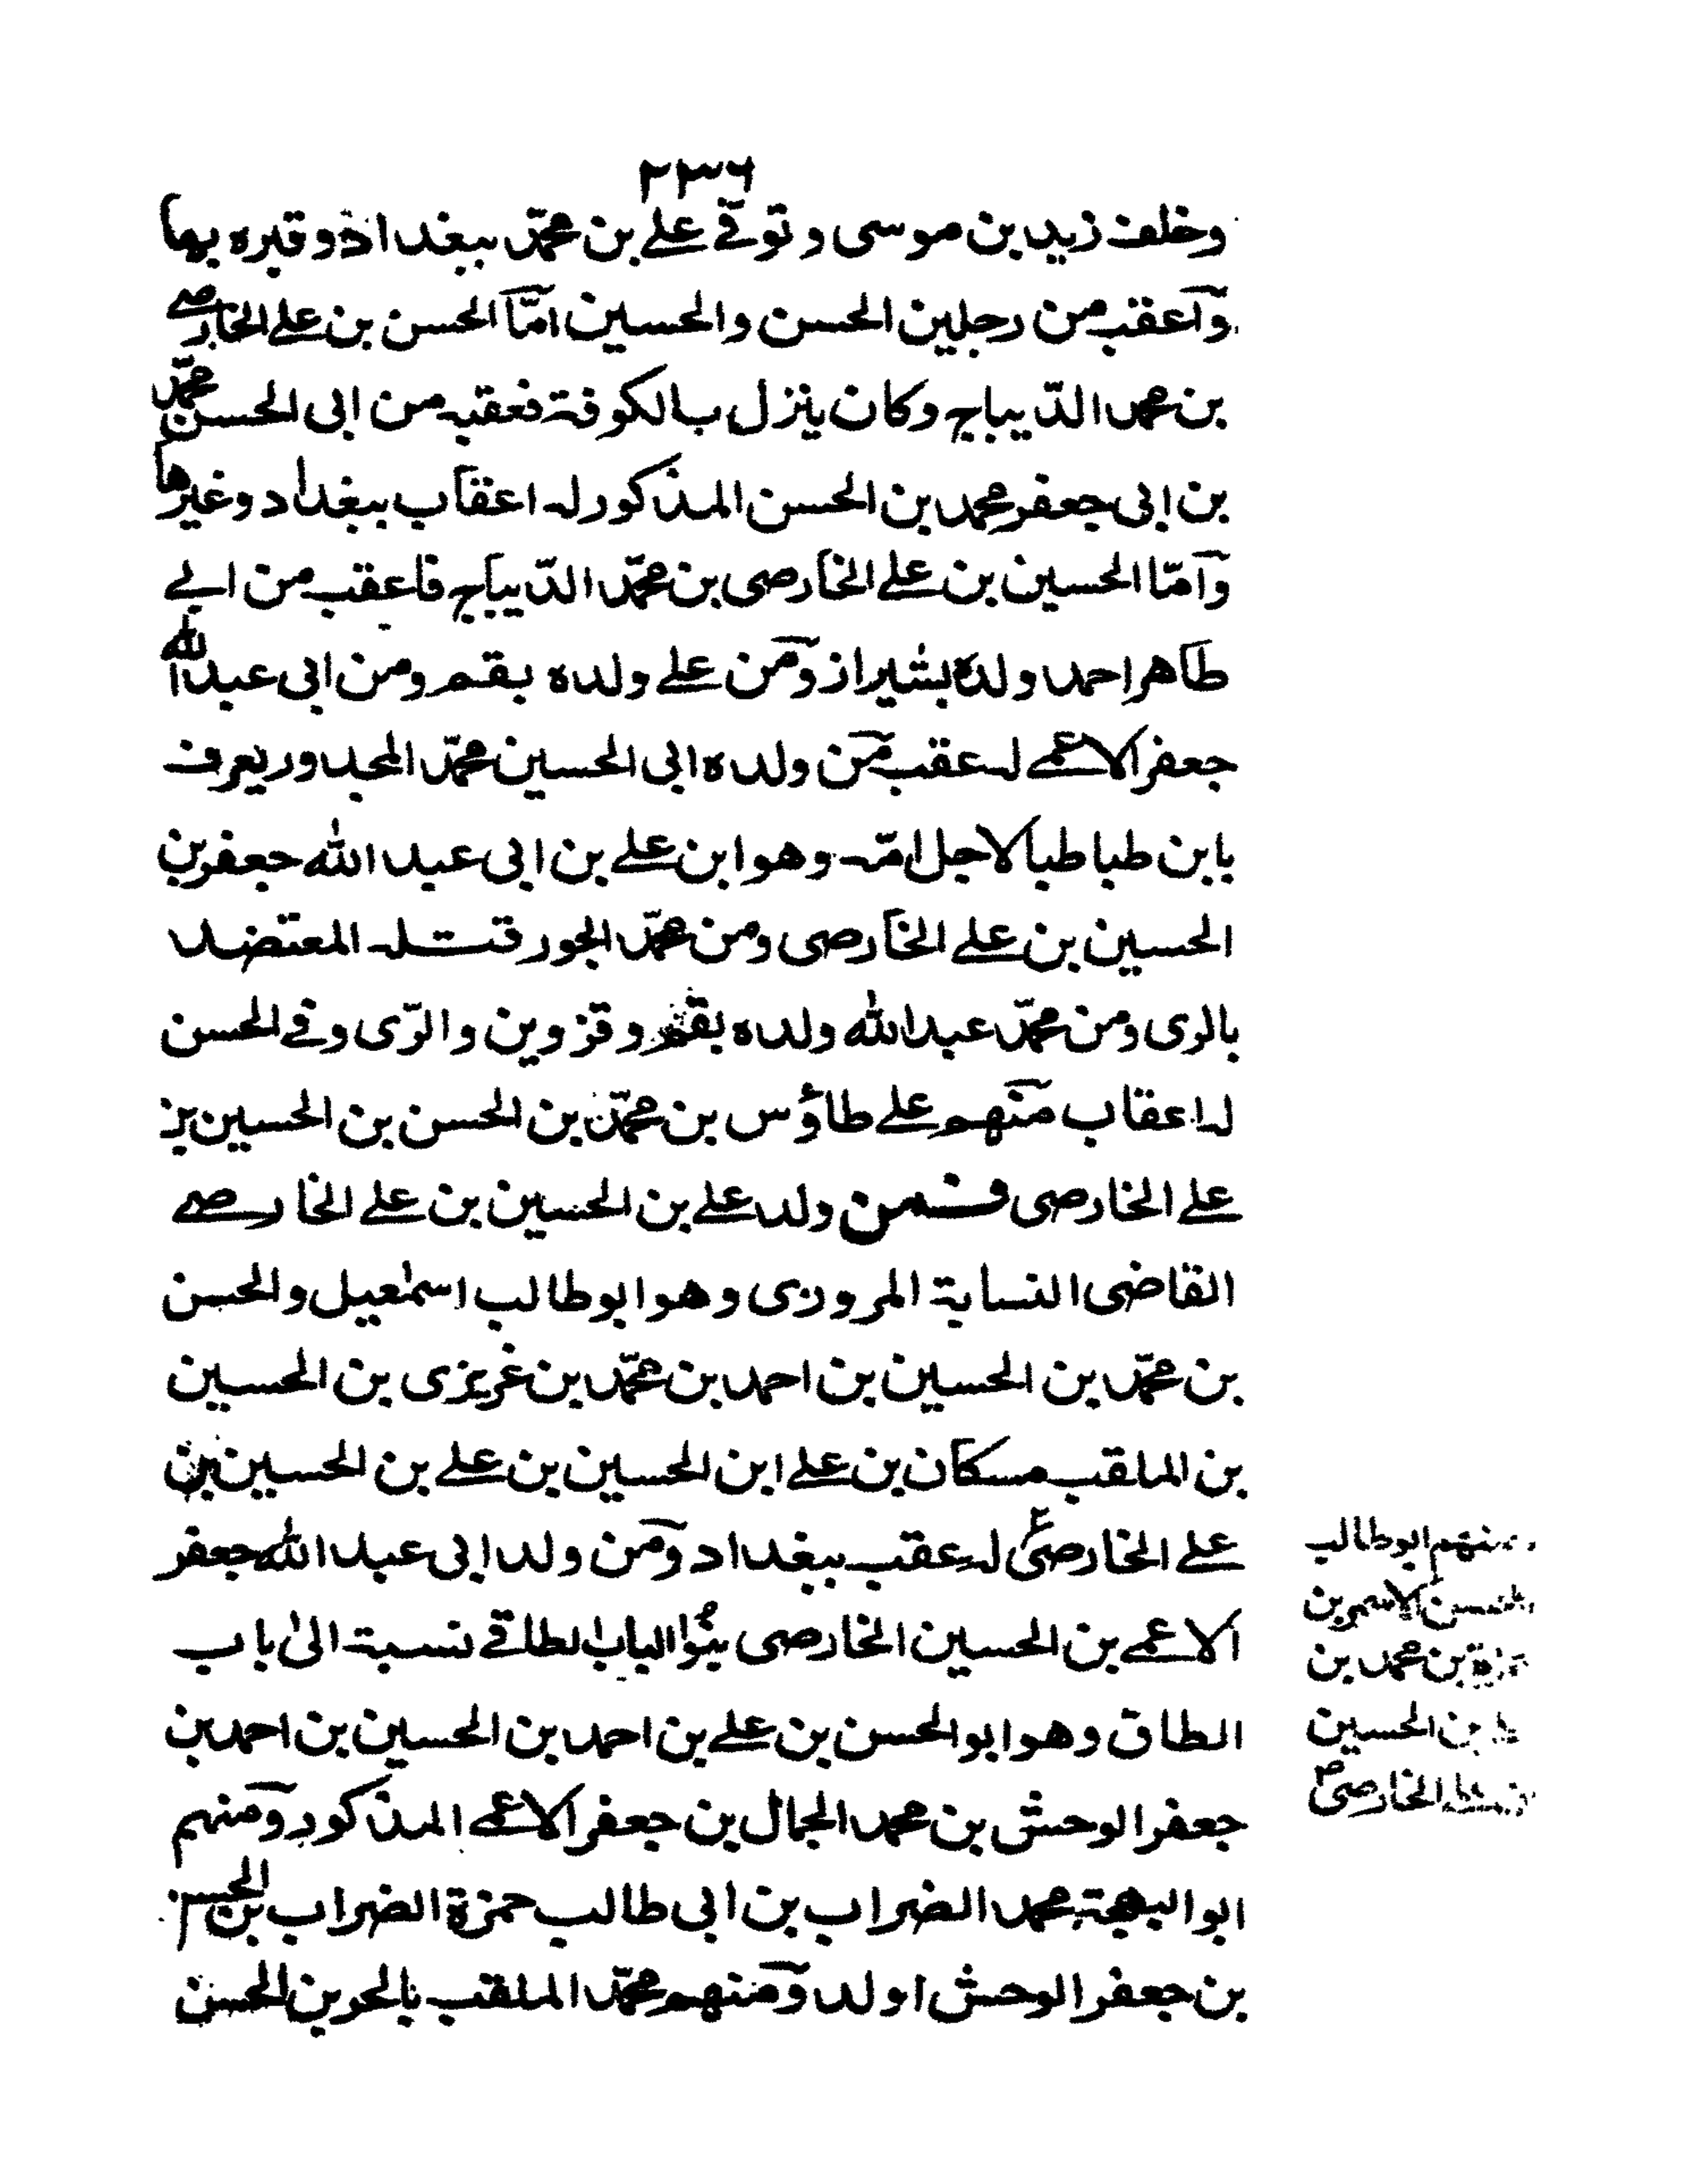 ٢٣٦
وخلف زيد بن موسى و توفي علے بن محمّد ببغداد و قبره بها
وآعقب من رجلين الحسن والحسين امّا الحسن بن علے الخارصے
بن محمد الدّيباج وكان ينزل بالكوفة فعقبه من ابى الحسن محمّد
بن ابى جعفر محمد بن الحسن المذكور له اعقاب ببغداد وغيرها
وآمّا الحسين بن علے الخارصى بن محمّد الدّيباج فاعقب من ابے
طاهر احمد ولده بشيراز ومن علے ولده بقم ومن ابى عبد الله
جعفر الاعمے له عقب من ولده ابى الحسين محمّد المجدور يعرف
بابن طباطبا لاجل امّه وهو ابن علے بن ابى عبد الله جعفر بن
الحسين بن علے الخارصى ومن محمّد الجور قتله المعتضد
بالرى ومن محمّد عبد الله ولده بقم وقزوين والرّى وفے الحسن
له اعقاب منهم علے طاؤس بن محمّد بن الحسن بن الحسين بن
علے الخارصى فمن ولد علے بن الحسين بن علے الخارصے
القاضى النسابة المروزى وهو ابو طالب اسمٰعيل والحسن
بن محمّد بن الحسين بن احمد بن محمّد بن غريزى بن الحسين
بن الملقب مسكان بن علے ابن الحسين بن علے بن الحسين بن
علے الخارصى له عقب ببغداد ومن ولد ابى عبد الله جعفر
الاعمے بن الحسين الخارصى بنوا الباب الطاقے نسبة الىٰ باب
الطاق وهو ابو الحسن بن علے بن احمد بن الحسين بن احمد بن
جعفر الوحش بن محمد الجمال بن جعفر الاعمے المذكور ومنهم
ابو البهجة محمد الضراب بن ابى طالب حمزة الضراب بن الحسن
بن جعفر الوحش اولد ومنهم محمّد الملقب بالحر بن الحسن
منهم ابو طالب
الحسن الاسمر بن
حمزة بن محمد بن
بن الحسين
الخارصى